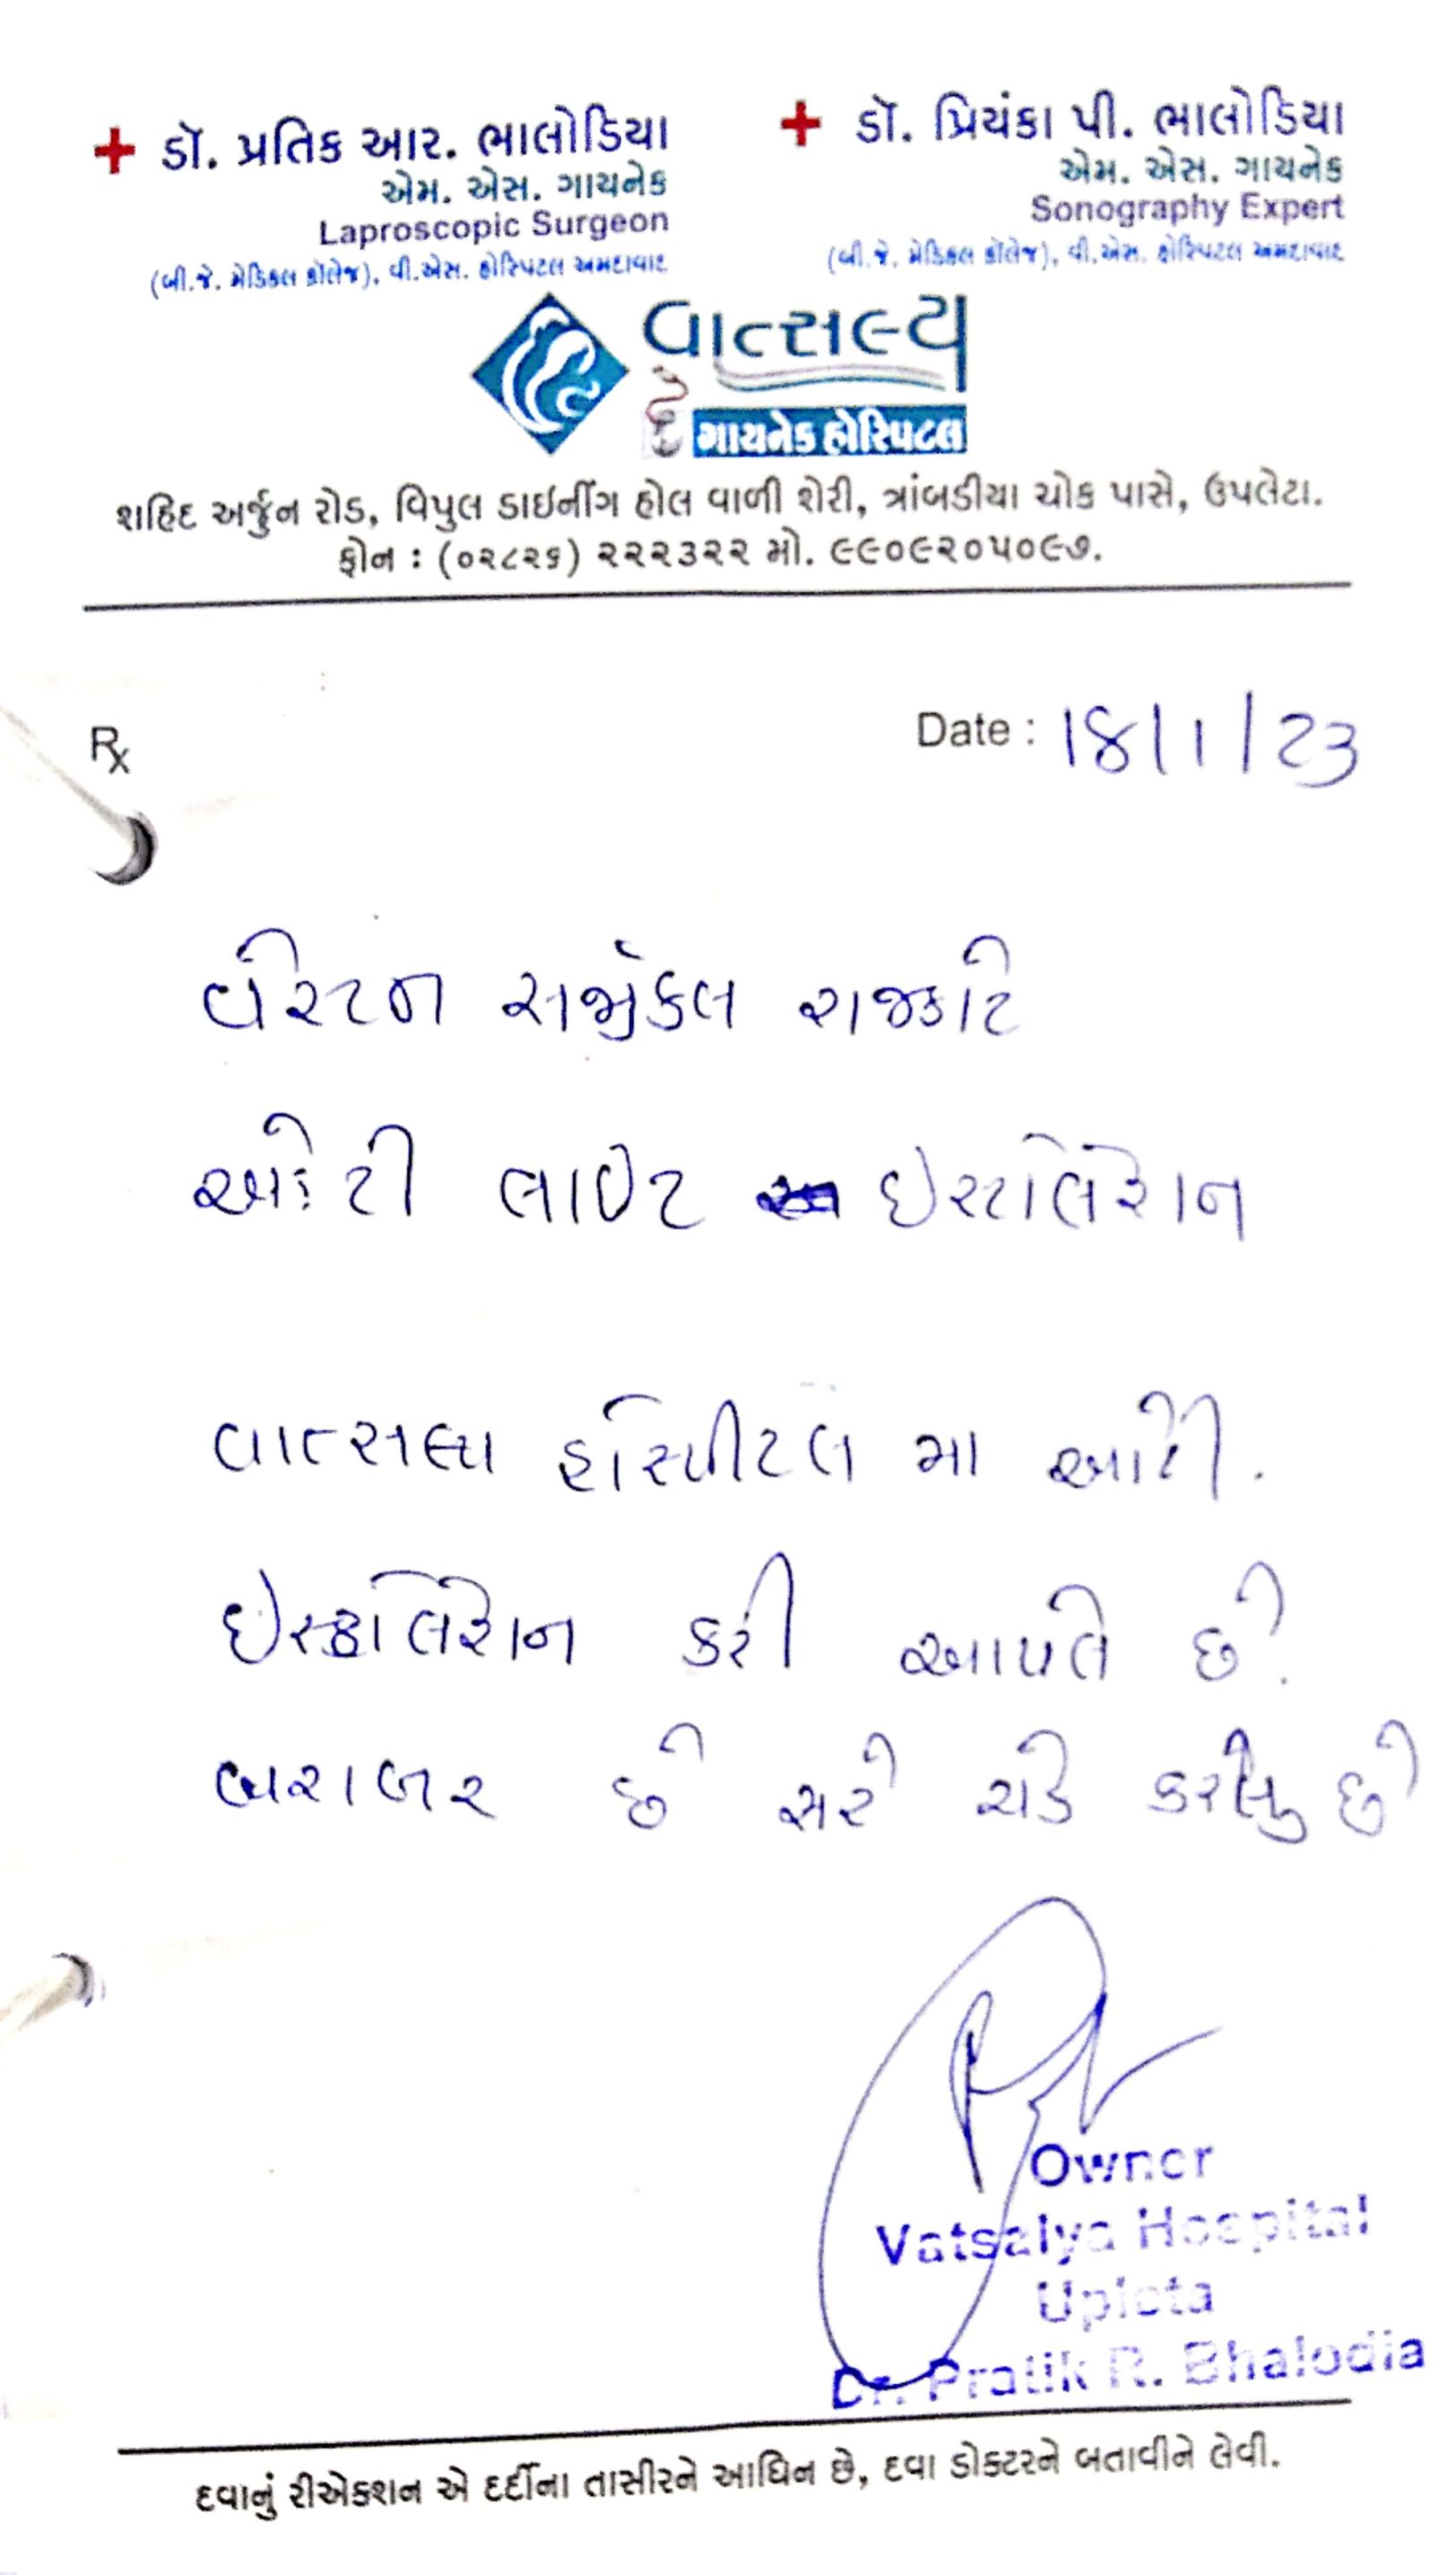 ડૉ. પ્રતિક આર. ભાલોડિયા
એમ. એસ. ગાયનેક
Laproscopic Surgeon
(બી.જે. મેડિકલ કૉલેજ), વી.એસ. હોસ્પિટલ અમદાવાદ
ડૉ. પ્રિયંકા પી. ભાલોડિયા
એમ. એસ. ગાયનેક
Sonography Expert
(બી.જે. મેડિકલ કૉલેજ), વી.એસ. હોસ્પિટલ અમદાવાદ
વાત્સલ્ય
ગાયનેક હોસ્પિટલ
શહિદ અર્જુન રોડ, વિપુલ ડાઇનીંગ હોલ વાળી શેરી, ત્રાંબડીયા ચોક પાસે, ઉપલેટા.
ફોન : (૦૨૮૨૬) ૨૨૨૩૨૨ મો. ૯૯૦૯૨૦૫૦૯૭.
Rx
Date : 18/1/23
વેસ્ટન સર્જીકલ રાજકોટ
ઓટી લાઈટ ઈસ્ટોલેશન
વાત્સલ્ય હોસ્પીટલ મા ઓટી.
ઈસ્ટોલેશન કરી આપેલ છે.
બરાબર છે સારી કરેલુ છે
Owner
Vatsalya Hospital
Upleta
Dr. Pratik R. Bhalodia
દવાનું રીએકશન એ દર્દીના તાસીરને આધિન છે, દવા ડોકટરને બતાવીને લેવી.